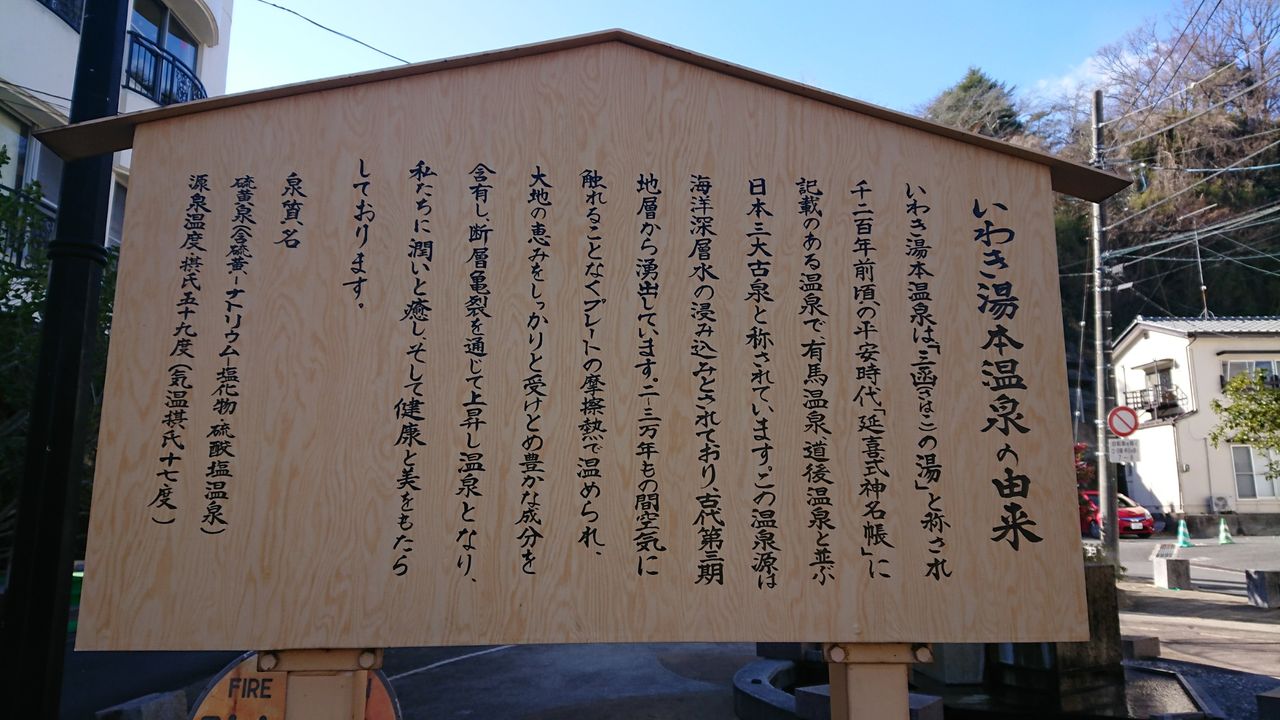 いわき湯本温泉の由来
いわき湯本温泉は、「三函(さはこ)の湯」と称され
千二百年前頃の平安時代「延喜式神名帳」に
記載のある温泉で、有馬温泉、道後温泉と並ぶ
日本三大古泉と称されています。この温泉源は
海洋深層水の浸み込みとされており、古代第三期
地層から湧出しています。二-三万年もの間空気に
触れることなくプレートの摩擦熱で温められ、
大地の恵みをしっかりと受けとめ豊かな成分を
含有し、断層亀裂を通じて上昇し温泉となり、
私たちに潤いと癒し、そして健康と美をもたら
しております。
泉質名
硫黄泉(含硫黄-ナトリウム-塩化物 硫酸塩温泉)
源泉温度 摂氏五十九度(気温摂氏十七度)
FIRE